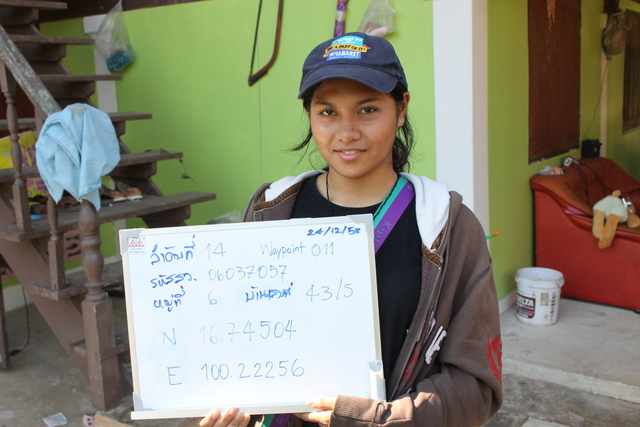 24/12/58
ลำดับที่ 14 Waypoint 011
รหัสสว. 06037057
หมู่ที่ 6 บ้านเลขที่ 43/5
N 16.74504
E 100.22256